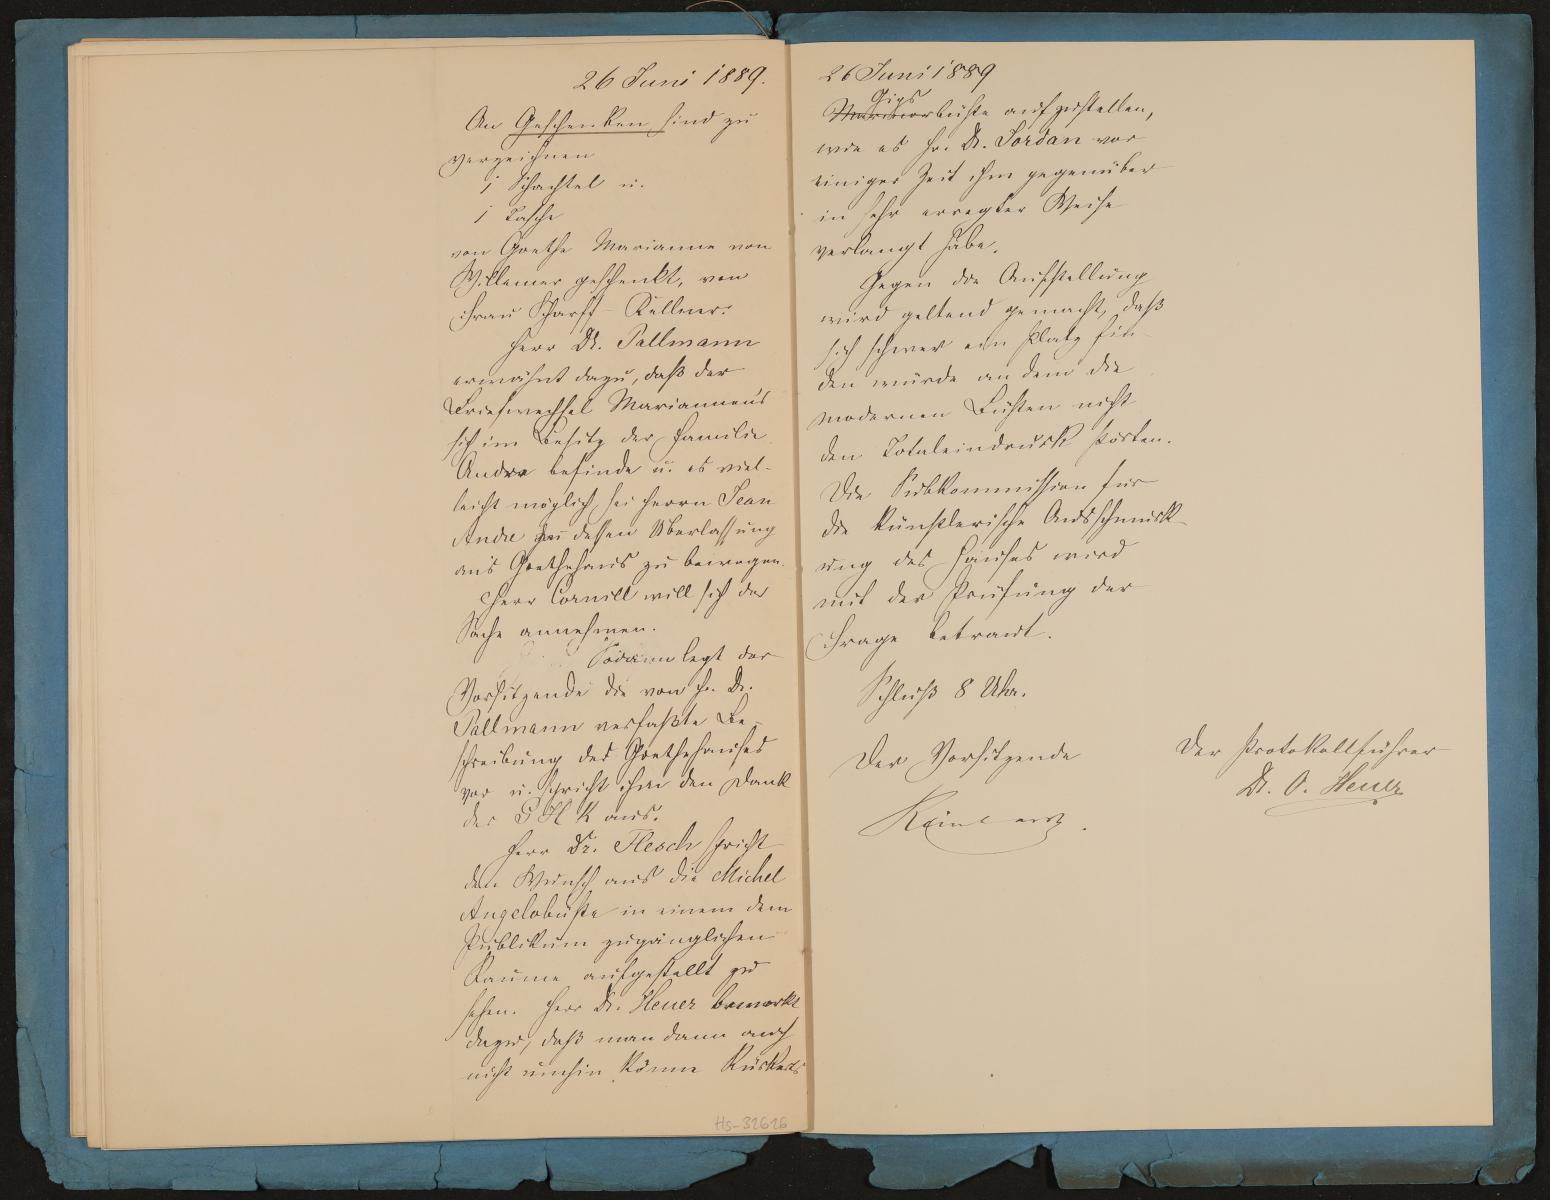 26 Juni 1889.
An Geschenken sind zu
verzeichnen
1 Schachtel u.
1 Tasche
von Goethe Marianne von
Willemer geschenkt, von
Frau Scharff-Kellner.
Herr Dr. Pallmann
erwähnt dazu, daß der
Briefwechsel Mariannen's
sich im Besitz der Familie
Andre befinde u. es viel-
leicht möglich sei Herrn Jean
Andre zu dessen Überlassung
an's Goethehaus zu bewegen.
Herr Cornill will sich der
Sache annehmen.
Sodann legt der
Vorsitzende die von Hr. Dr.
Pallmann verfaßte Be-
schreibung des Goethehauses
vor u. spricht ihm den Dank
der G H K aus.
Herr Dr. Flesch spricht
den Wunsch aus die Michel
Angelobüste in einem dem
Publikum zugänglichen
Raume aufgestellt zu
sehen. Herr Dr. Heuer bemerkt
dazu, daß man dann auch
nicht umhin könne Rückerts
Hs-32626
26 Juni 1889
Gips
Marmorbüste aufzustellen,
wie es Hr. Dr. Jordan vor
einiger Zeit ihm gegenüber
in sehr erregter Weise
verlangt habe.
Gegen die Aufstellung
wird geltend gemacht, daß
sich schwer ein Platz fin-
den würde an dem die
modernen Büsten nicht
den Totaleindruck störten.
Die Subkommission für
die künstlerische Ausschmück-
ung des Hauses wird
mit der Prüfung der
Frage betraut.
Schluß 8 Uhr.
Der Vorsitzende
Der Protokollführer
Dr. O. Heuer